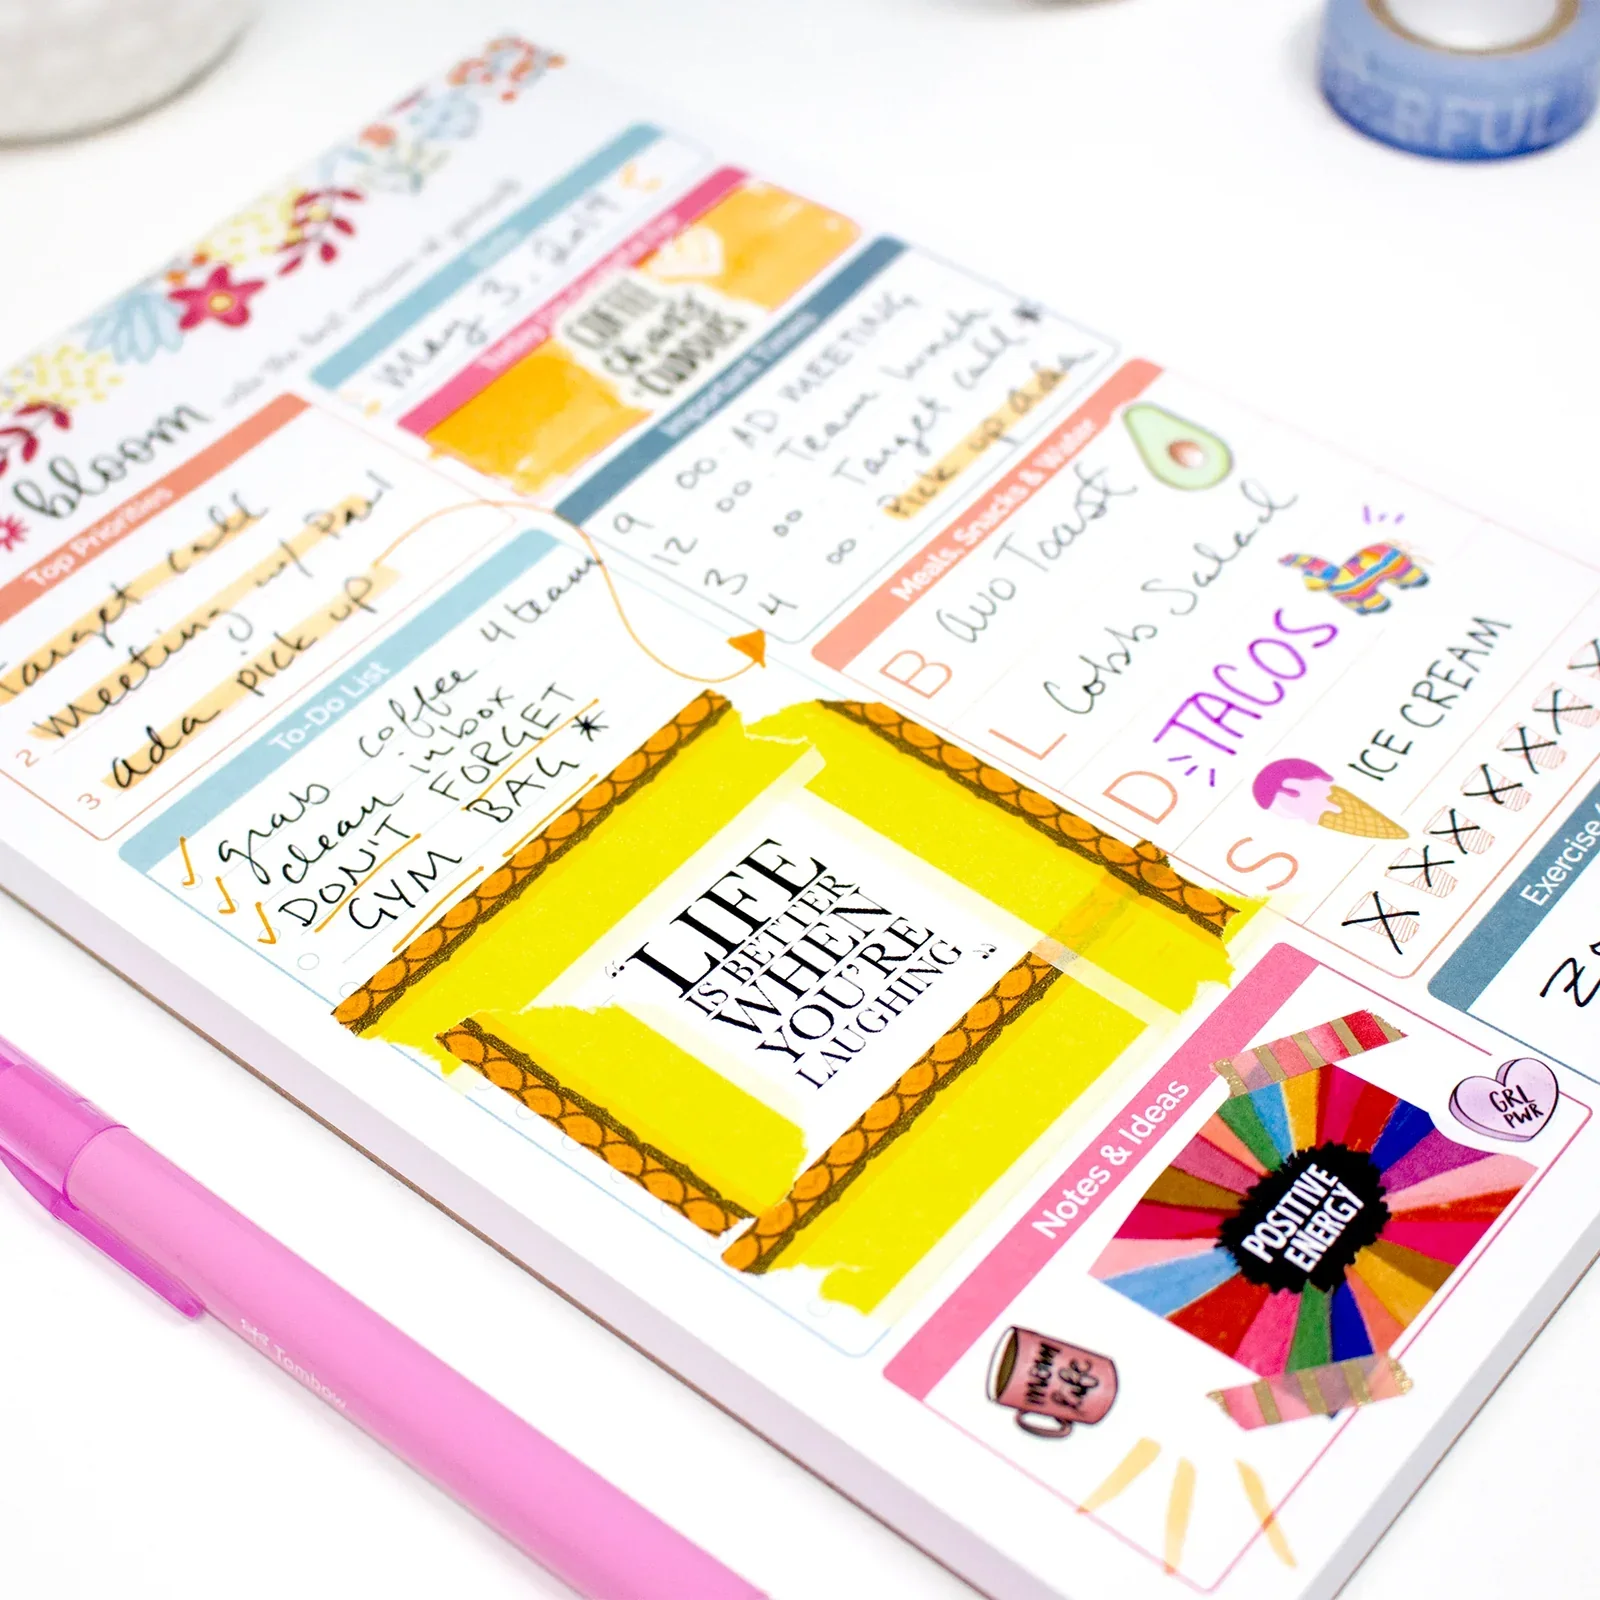 bloom
into the best version of yourself
Date
May 3. 2019
Top Priorities
Target call
2 Meeting w/ Paul
3 ada pick up
To-Do List
grab coffee 4 team
clean inbox
DON'T FORGET
GYM BAG *
Important Times
9 00 · AD MEETING
12 00 · Team lunch
3 00 · Target call *
4 00 · Pick up ada
Meals, Snacks & Water
B avo Toast
L Cobb Salad
D TACOS
S ICE CREAM
X X X X X X X
Exercise
“LIFE
IS BETTER
WHEN
YOU'RE
LAUGHING”
Notes & Ideas
POSITIVE
ENERGY
GRL
PWR
mom
life
Tombow
ERFUL